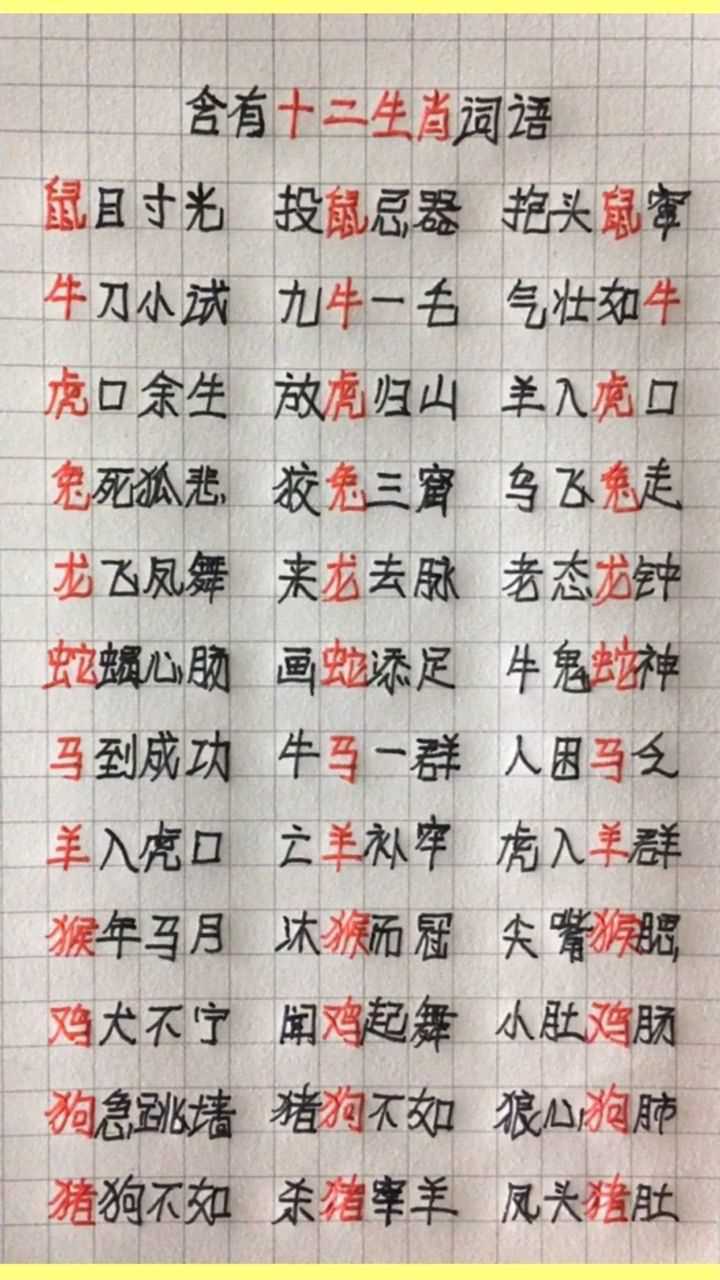 含有十二生肖词语
鼠目寸光 投鼠忌器 抱头鼠窜
牛刀小试 九牛一毛 气壮如牛
虎口余生 放虎归山 羊入虎口
兔死狐悲 狡兔三窟 乌飞兔走
龙飞凤舞 来龙去脉 老态龙钟
蛇蝎心肠 画蛇添足 牛鬼蛇神
马到成功 牛马一群 人困马乏
羊入虎口 亡羊补牢 虎入羊群
猴年马月 沐猴而冠 尖嘴猴腮
鸡犬不宁 闻鸡起舞 小肚鸡肠
狗急跳墙 猪狗不如 狼心狗肺
猪狗不如 杀猪宰羊 凤头猪肚